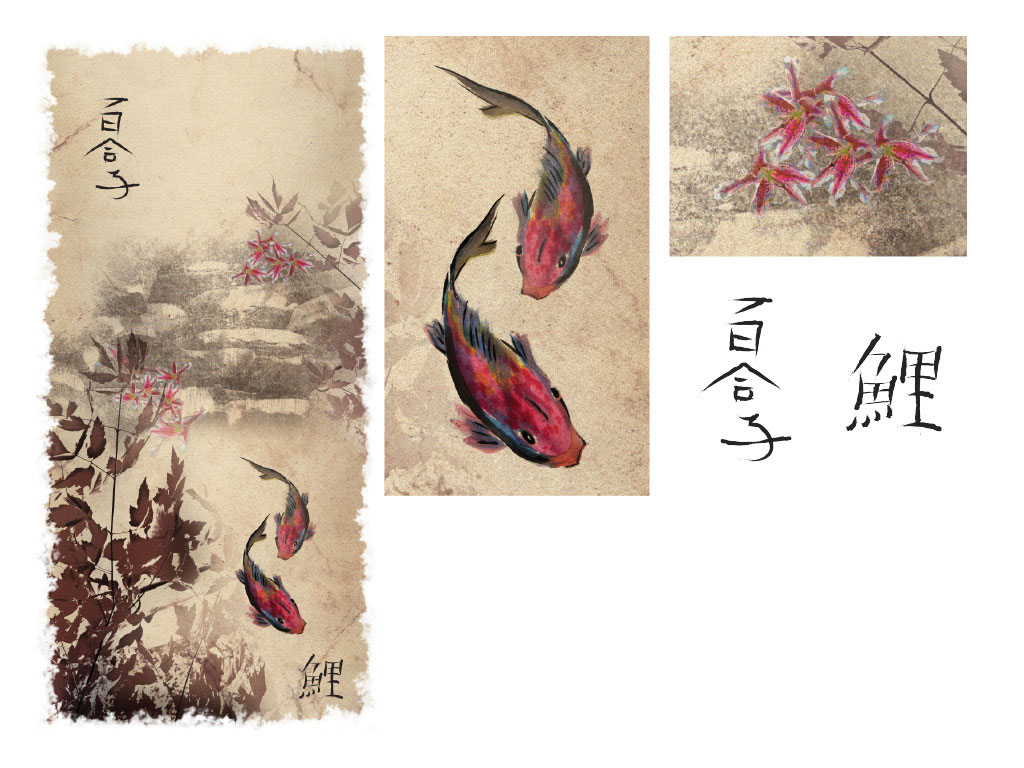 百合子
鯉
百合子
鯉